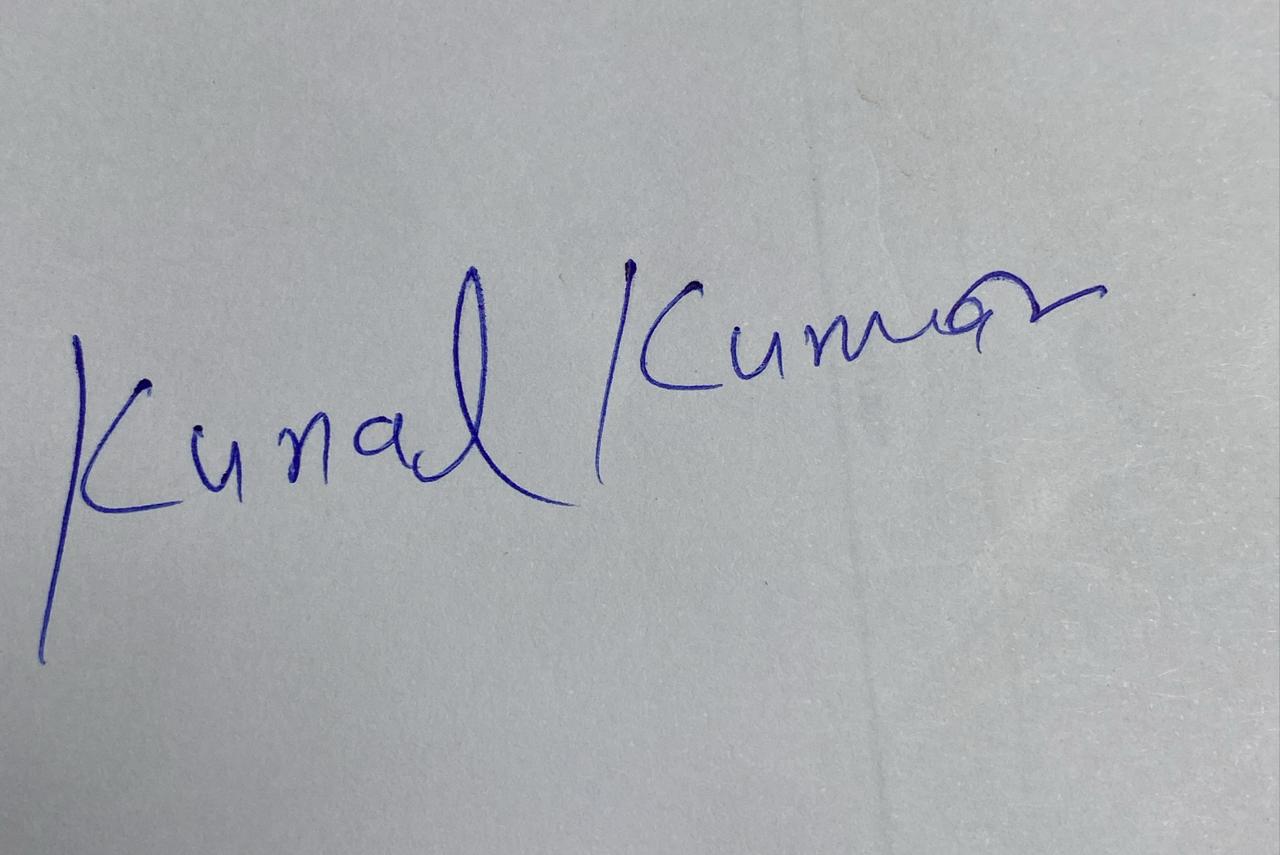 Kunal Kumar